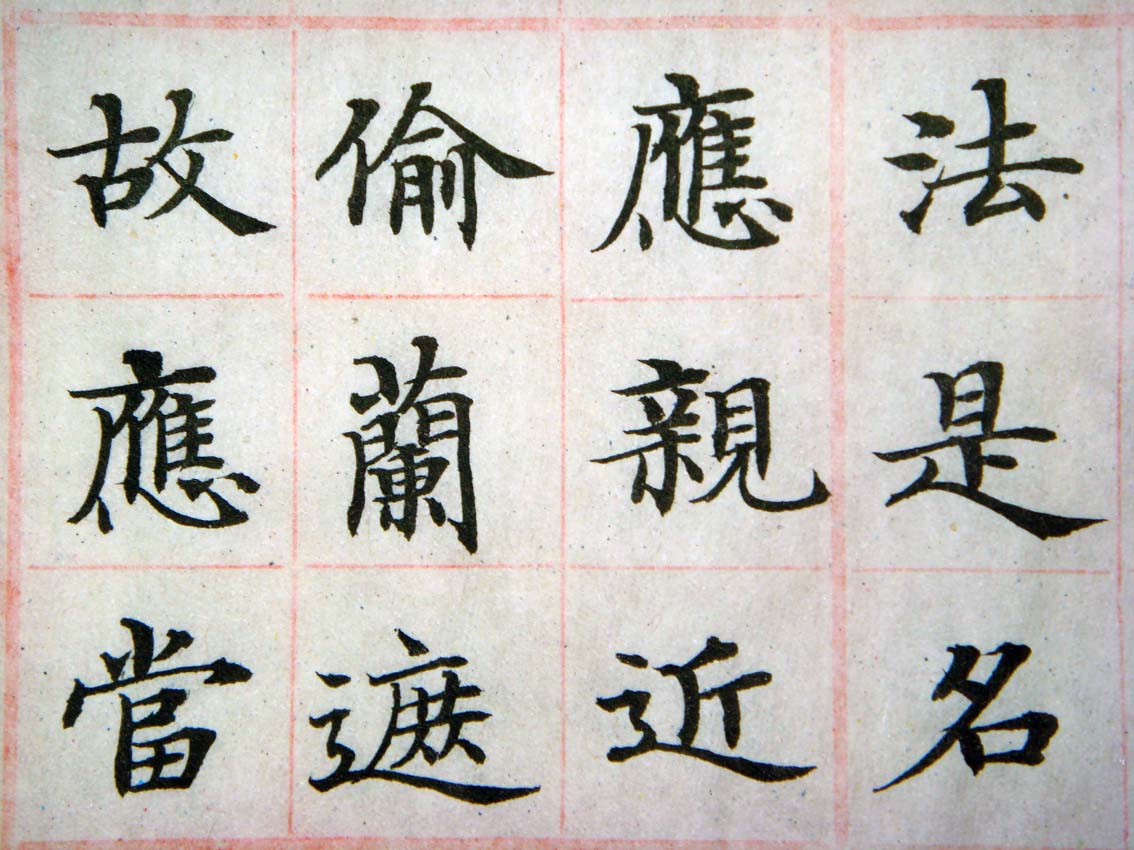 法是名
應親近
偷蘭遮
故應當